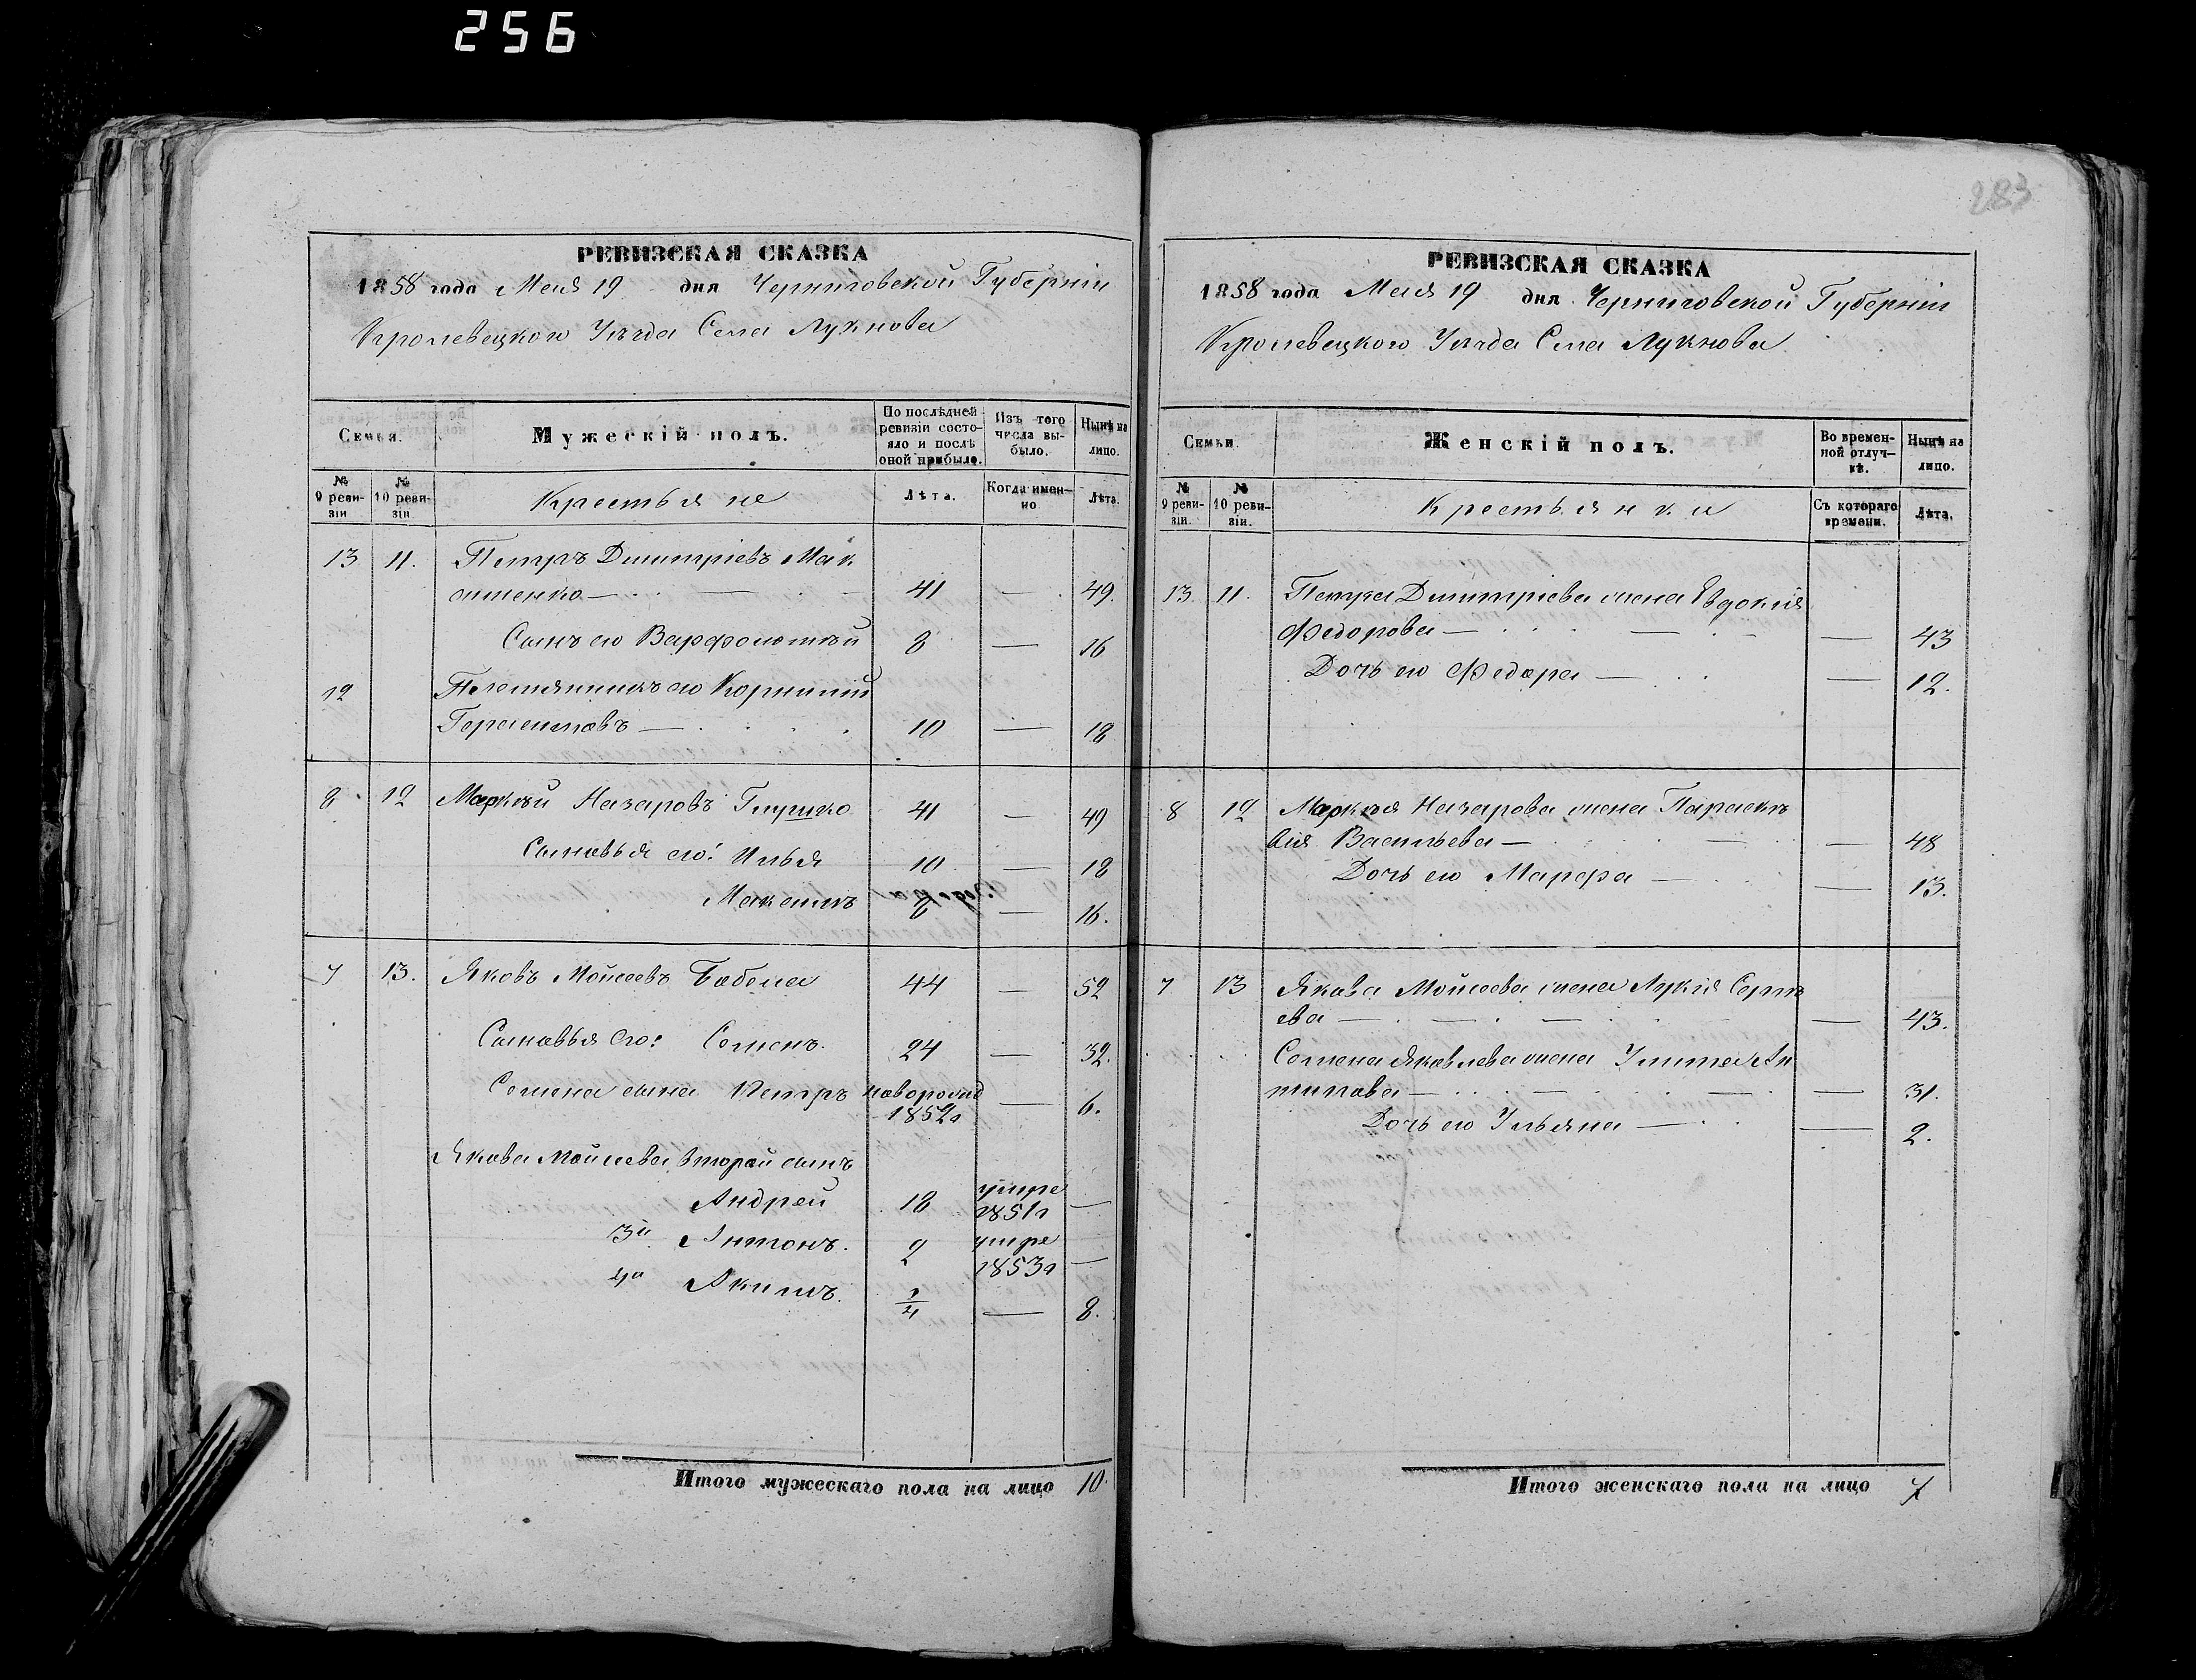 256
283
РЕВИЗСКАЯ СКАЗКА
1858 года Мая 19 дня Черниговской Губерніи
Кролевецкого Уѣзда Села Лукнова
Семья.
Мужескій полъ.
По послѣдней ревизіи состояло и послѣ оной прибыло.
Изъ того числа выбыло.
Нынѣ на лицо.
№ 9 ревизіи
№ 10 ревизіи.
Крестьяне
Лѣта.
Когда именно
Лѣта.
13 11. Петръ Дмитріевъ Мак
сименко — 41 — 49.
Сынъ его Варфоломѣй 8 — 16
12 Племянникъ его Корнилій
Герасимовъ — 10 — 18
8 12 Маркѣй Назаровъ Глушко 41 — 49
Сыновья его: Илья 10 — 18
Максимъ 8 — 16.
7 13. Яковъ Мойсеевъ Бабела 44 — 52
Сыновья его: Семенъ. 24 — 32.
Семена сынъ Петръ новорожд 1852г — 6.
Якова Мойсеева второй сынъ
Андрей 18 умре 1851г —
3й Антонъ. 2 умре 1853г —
4й Акимъ. 1/4 — 8.
Итого мужескаго пола на лицо 10.
РЕВИЗСКАЯ СКАЗКА
1858 года Мая 19 дня Черниговской Губерніи
Кролевецкого Уѣзда Села Лукнова
Семьи.
Женскій полъ.
Во временной отлучкѣ.
Нынѣ на лицо.
№ 9 ревизіи.
№ 10 ревизіи.
Крестьянки
Съ котораго времени.
Лѣта.
13 11. Петра Дмитріева жена Евдокия
Федорова — — 43
Дочь его Федора — — 12.
8 12 Маркѣя Назарова жена Параскѣ
вия Васильева — — 48
Дочь его Марфа — — 13.
7 13 Якова Мойсеева жена Лукия Сергѣ
ева — — 43.
Семена Яковлева жена Улита Ан
типова — — 31.
Дочь его Ульяна — — 2.
Итого женскаго пола на лицо 7